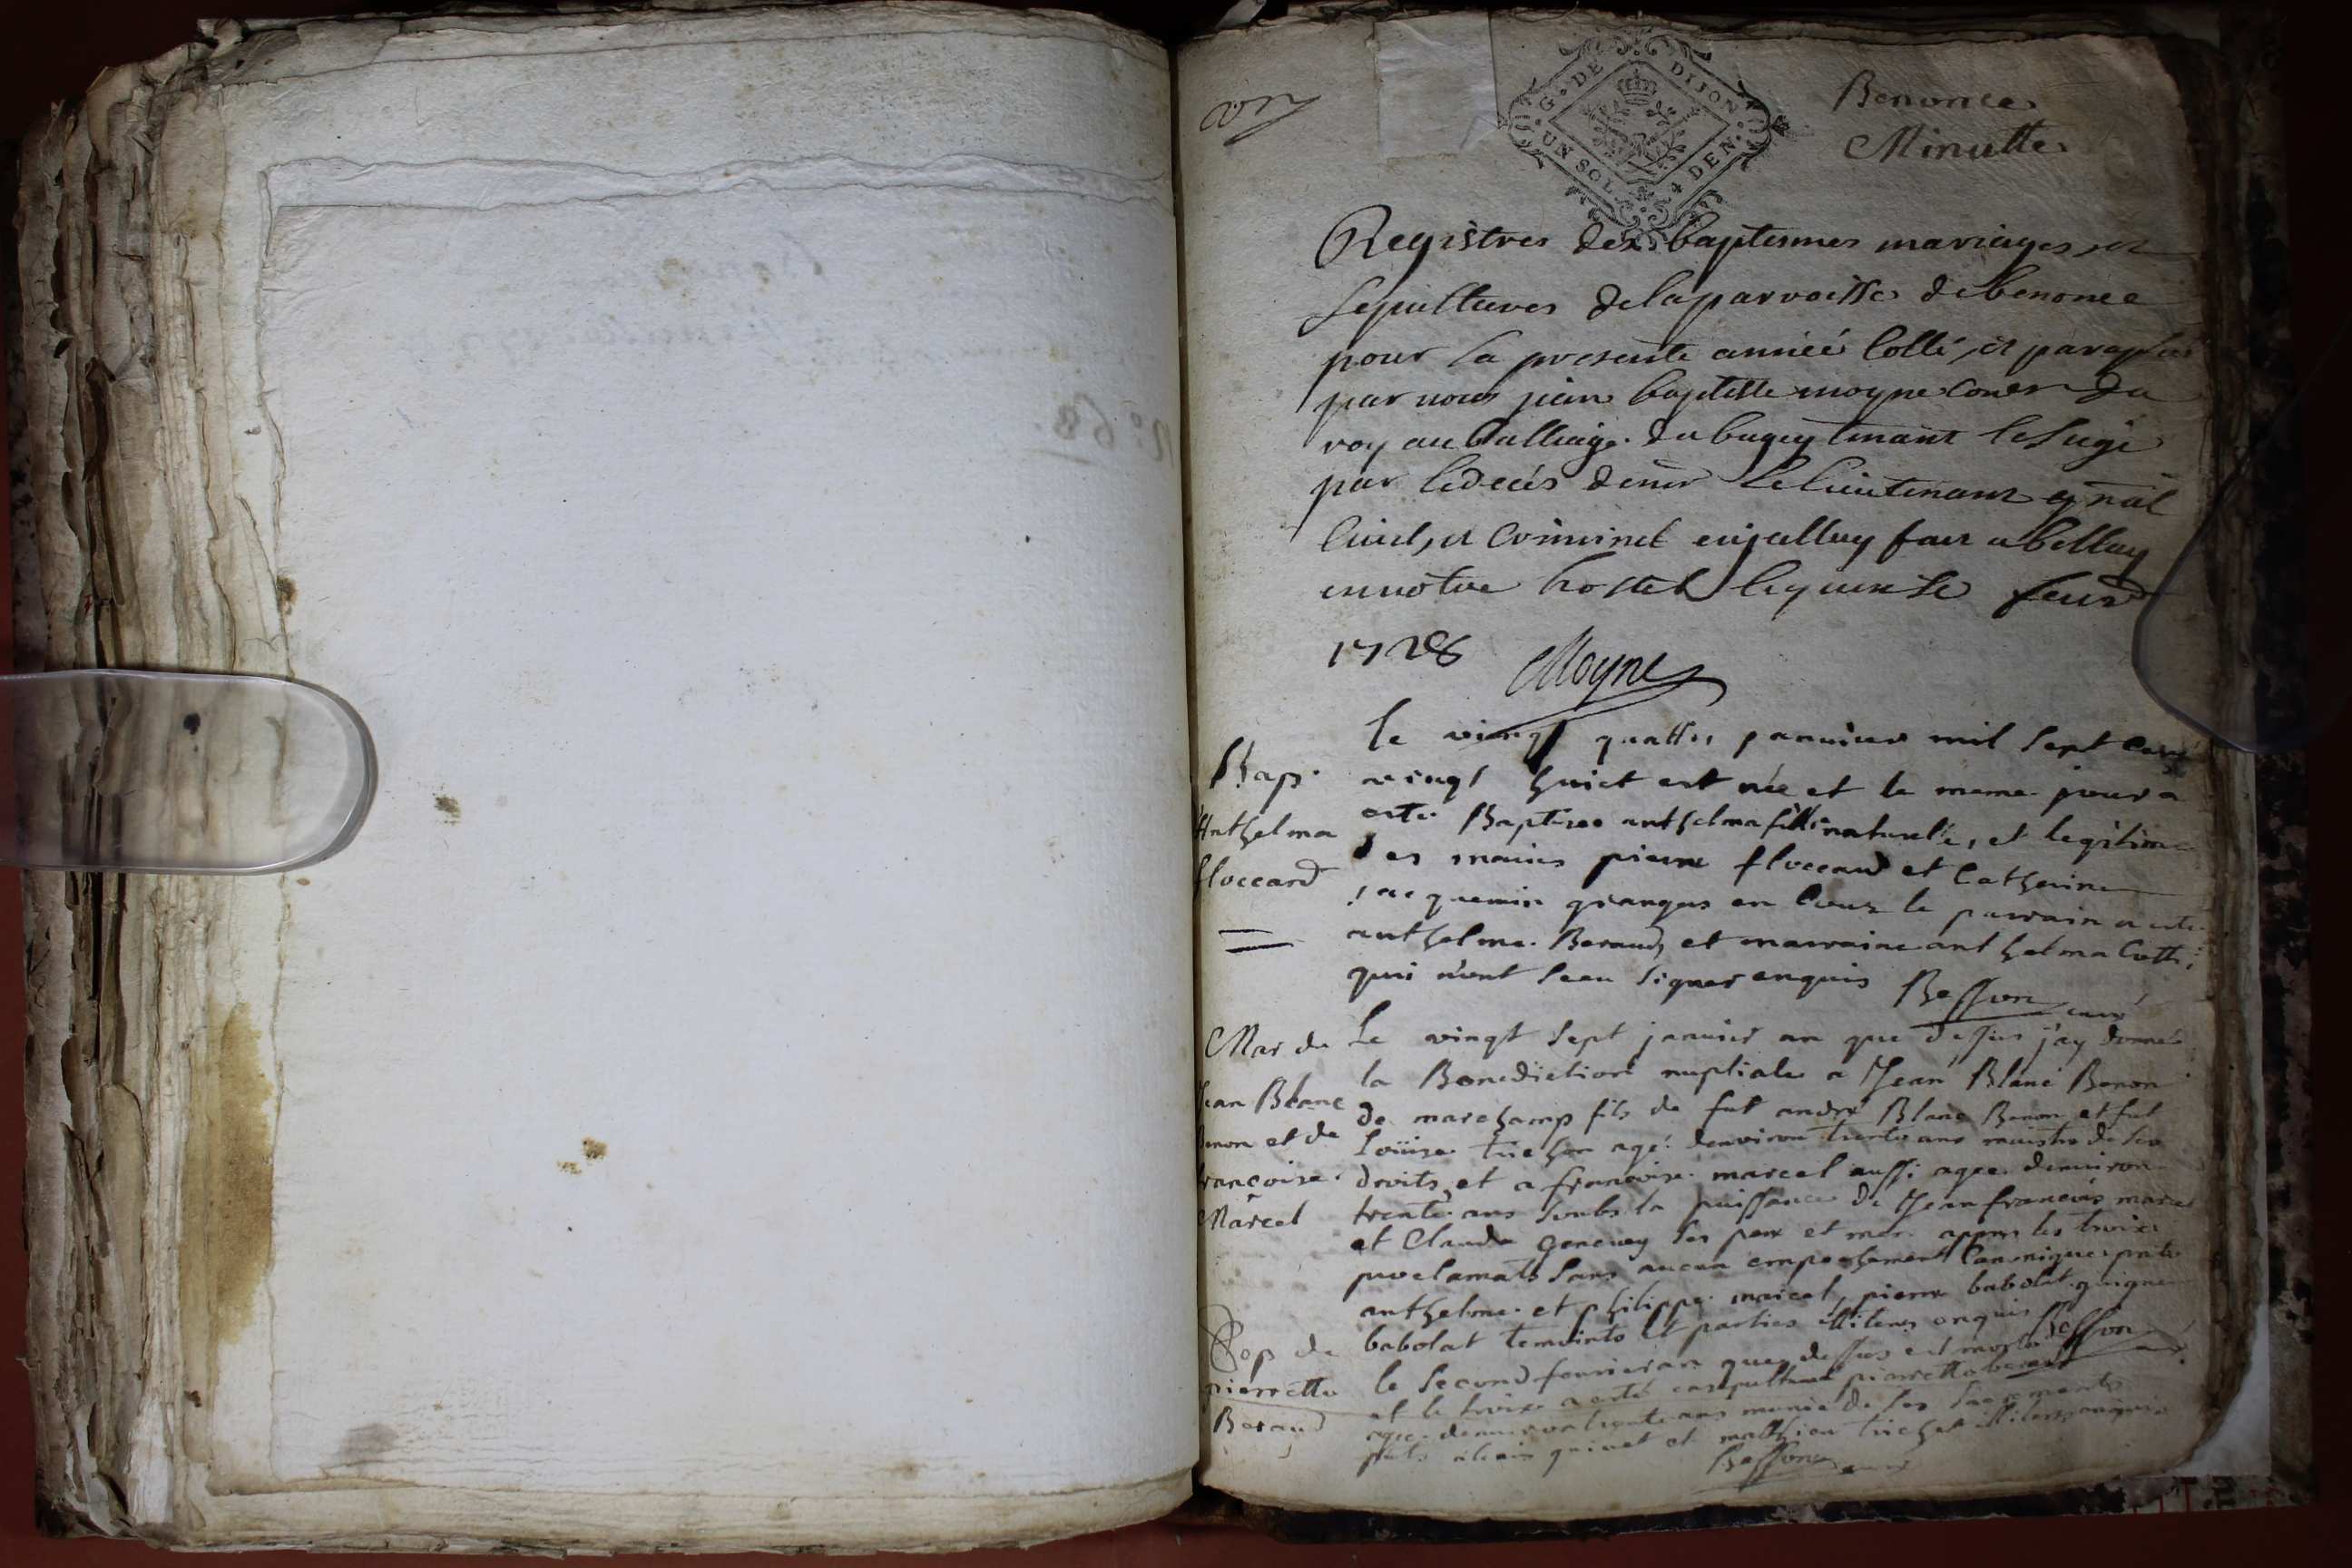 Benonce
Minutte
G. DE DIJON
UN SOL 4 DEN.
Registres des baptesmes mariages et
sepultures de la parroisse de benonce
pour la presente année Cotté, et paraphés
par nous jean baptiste moyne Coner du
roy au balliage du bugey tenant le siege
par le decés de mr le lieutenant gnal
Civil, et Criminel
en notre hostel le quinse
1728 Moyne
Bap.
Anthelma
floccard
Le vingt quattre janvier mil sept cent
vingt huict est née et le meme jour a
esté Baptisee anthelma fille naturelle, et legitime
pierre floccard et Catherine
jacquemin granger en Cour le parrain a esté
anthelme Beraud et marraine anthelma
qui n'ont sceu signer enquis Besson curé
Mar de
Jean Blanc
Benon et de
francoise
Marcel
Le vingt sept janvier an que dessus j'ay donné
la Benediction nuptiale a Jean Blanc Benon
de marchamp fils de fut andre Blanc Benon et fut
Loüise agé denviron trente ans maistre de ses
droits, et a francoise marcel aussi agee denviron
trente ans soubs la puissance de Jean francois marcel
et Clauda ses pere et mere apres les trois
proclamats sans aucun empechement Canonique pnts
anthelme et philippe marcel, pierre babolat
babolat temoints et parties illiteres enquis Besson
Sep de
pierrette
Beraud
le second fevrier an que dessus est morte
et le troise a esté ensepulturé pierrette beraud
agee denviron trente ans munie de ses sacrements
pnts quinet et matthieu illiteres enquis
Besson curé